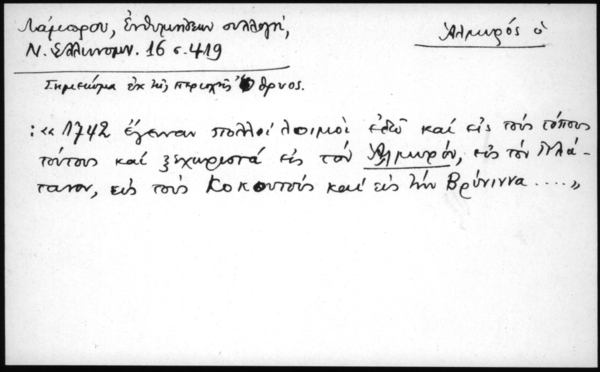 Λάμπρου, Ἐνθυμήσεων συλλογή,
Ἁλμυρός ὁ
Ν. Ἑλληνομν. 16 σ. 419
Σημείωμα ἐκ τῆς περιοχῆς Ὄθρυος.
: «1742 ἔγειναν πολλοί λοιμοί ἐδῶ καί εἰς τούς τόπους
τούτους καί ξεχωριστά εἰς τόν Ἁλμυρόν, εἰς τόν Πλά-
τανον, εἰς τούς Κοκοτούς καί εἰς τήν Βρύνιννα ....»